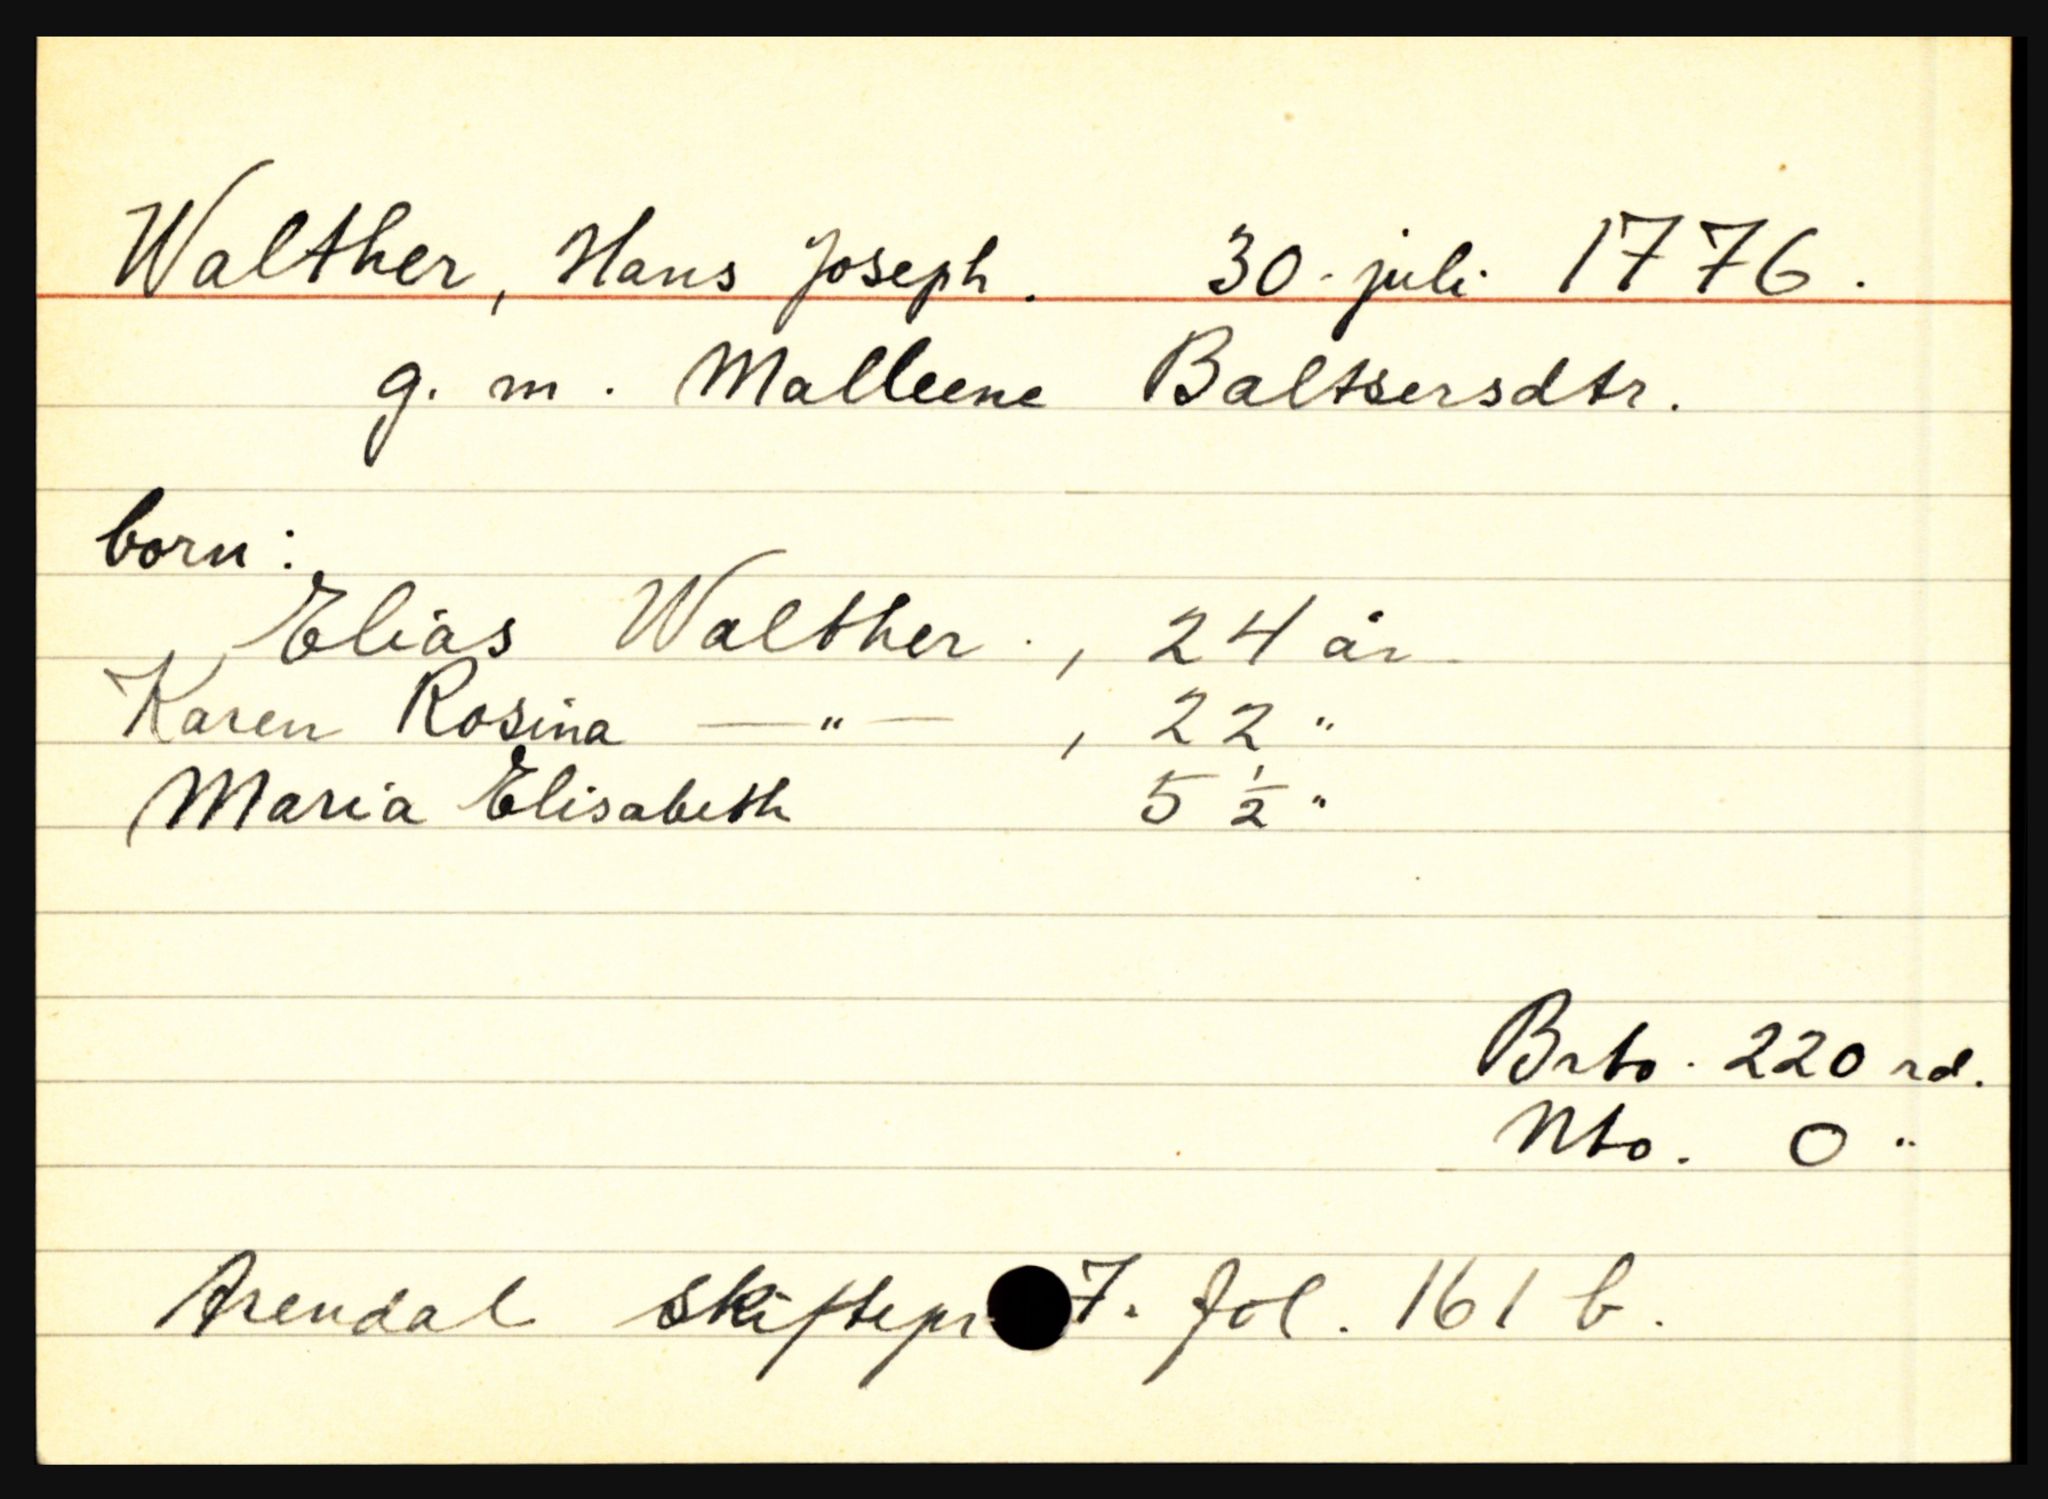 Walther, Hans Joseph. 30. juli 1776.
g. m. Malleene Baltsersdtr.
born:
Elias Walther. , 24 år
Karen Rosina — " — , 22 "
Maria Elisabeth 5 1/2 "
Brto. 220 rd.
Nto. 0 "
Arendal skiftepr 7. fol. 161 b.